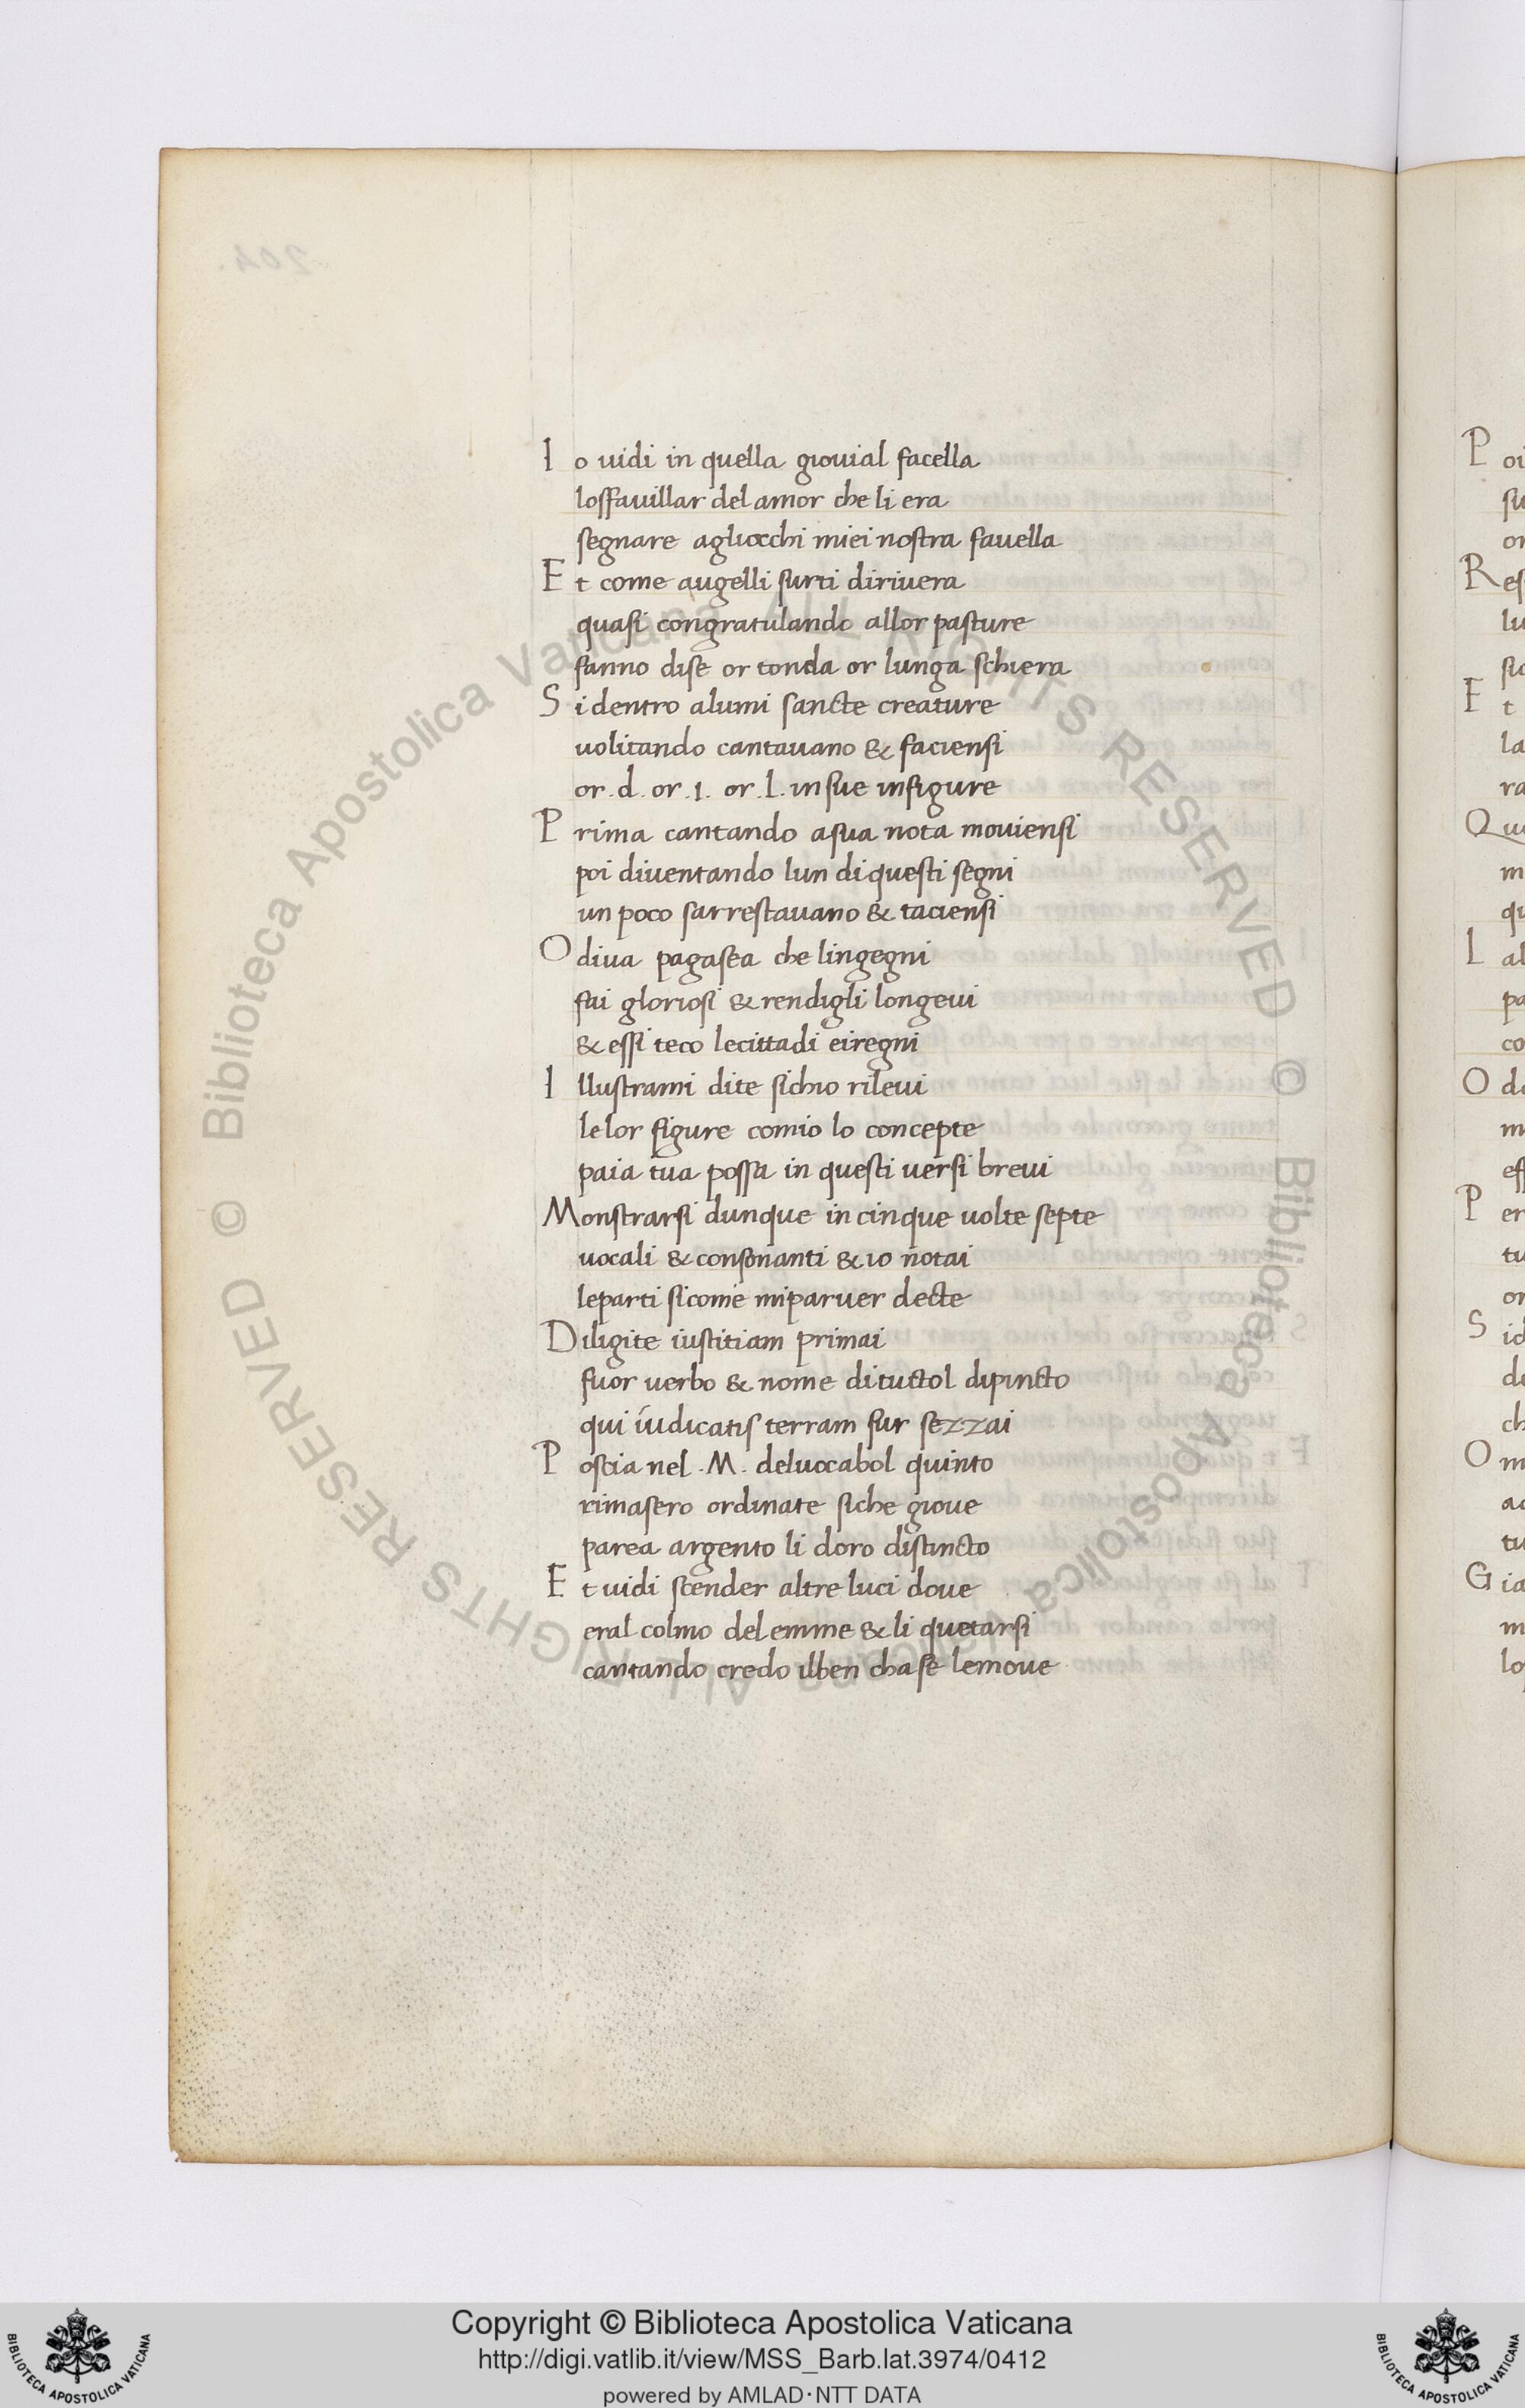 Io uidi in quella giouial facella
losfauillar del amor che li era
segnare agliocchi miei nostra fauella
Et come augelli surti dirivera
quasi congratulando allor pasture
fanno dise or tonda or lunga schiera
Si dentro alumi sancte creature
uolitando cantauano & faciensi
or .d. or .i. or .l. in sue infigure
Prima cantando asua nota mouiensi
poi diventando lun di questi segni
un poco sarrestauano & taciensi
O diua pagasea che lingegni
fai gloriosi & rendigli longeui
& essi teco lecittadi eiregni
Illustrami dite sichio rileui
lelor figure comio lo concepte
paia tua possa in questi uersi breui
Monstrarsi dunque in cinque uolte septe
uocali & consonanti & io notai
leparti sicome miparuer decte
Diligite iustitiam primai
fuor uerbo & nome di tuctol dipincto
qui iudicatis terram fur sezzai
Poscia nel .M. deluocabol quinto
rimasero ordinate siche gioue
parea argento li doro distincto
Et uidi scender altre luci doue
eral colmo del emme & li quetarsi
cantando credo ilben chase lemoue
Copyright © Biblioteca Apostolica Vaticana
http://digi.vatlib.it/view/MSS_Barb.lat.3974/0412
powered by AMLAD·NTT DATA